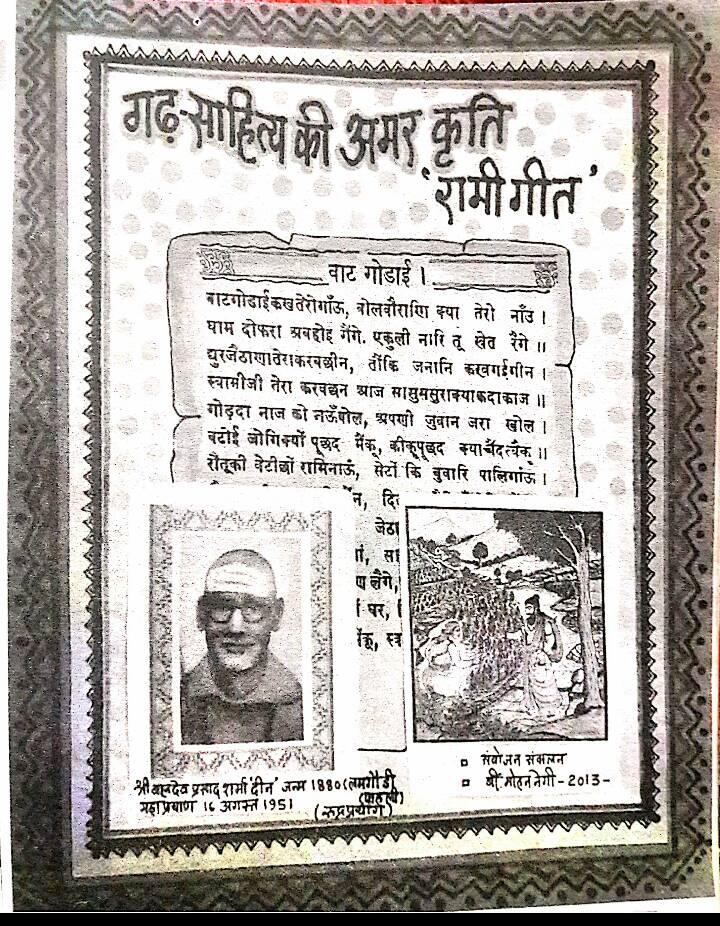 गढ़-साहित्य की अमर कृति
'रामी गीत'
वाट गोडाई ।
बाटगोडाईकखतेरोगाँऊ, बोलबौराणि क्या तेरो नाँउ ।
घाम दोफरा अबहोइ गैंगे. एकुली नारि तू खेत रैंगे ॥
द्युरजैठाणातेराकखछीन, तौंकि जनानि कखगईगीन ।
स्वामीजी तेरा कखछन आज सासुससुराक्याकदाकाज ॥
गोड़दा नाज को नऊँबोल, अपणी जुबान जरा खोल ।
बटोई जोगिक्यों पूछद मैंकू, कीकूपूछद क्याचैंदत्वैक ॥
रौतूकी वेटीछौं रामिनाऊँ, सेटों कि बुवारि पालिगाऊँ ।
न, दि
जेठा
ां, सा
ण लैगे,
घर,
ैंकू, स्व
श्री बलदेव प्रसाद शर्मा 'दीन' जन्म 1880 (लमगौंडी
महाप्रयाण 16 अगस्त 1951
(रूद्रप्रयाग)
संयोजन संकलन
श्री मोहन नेगी - 2013 -